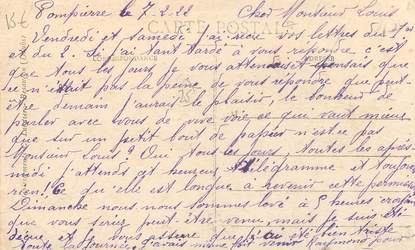 Pompierre le 7.2.22 Cher Monsieur Louis
Vendredi et samedi j'ai reçu vos lettres du
et du 2. Si j'ai tant tardé à vous répondre c'est
que tous les jours je vous attendais et pensais que
ce n'était pas la peine de vous répondre que peut-
être demain j'aurais le plaisir, le bonheur de
parler avec vous de vive voix ce que vaut mieux
que sur un petit bout de papier n'est ce pas
Monsieur Louis? Oui, tous les jours, toutes les après-
midi j'attends cet heureux télégramme et toujours
rien. Ce qu'elle est longue à revenir cette permission
Dimanche nous nous sommes levé à 5 heures croyant
que vous seriez peut-être venu, mais je suis été
déçue et je vous assure que j'ai été bien triste
toute la journée j'avais même fait venir Raymond pour
CARTE POSTALE
CORRESPONDANCE